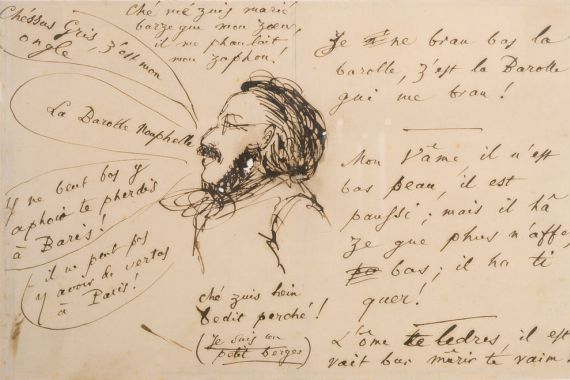 Chéssus Gris, z'est mon
ongle
Ché mé zuis marié
barze que mon zoen,
il me phaulait
mon zaphon!
La Barolle Nouphelle
Y ne beut bas y
aphoir te pherdès
à Baris!
il ne peut pas
y avoir de vertus
à Paris!
ché zuis hein
bedit perché!
(Je suis un
petit berger)
Je ne bran bas la
barolle, z'est la Barolle
qui me bran!
Mon Vâme, il n'est
bas peau, il est
paussi; mais il hâ
ze que phus n'affe,
bas; il ha ti
quer!
L'ôme te ledres, il est
vait bur mûrir te vaim.